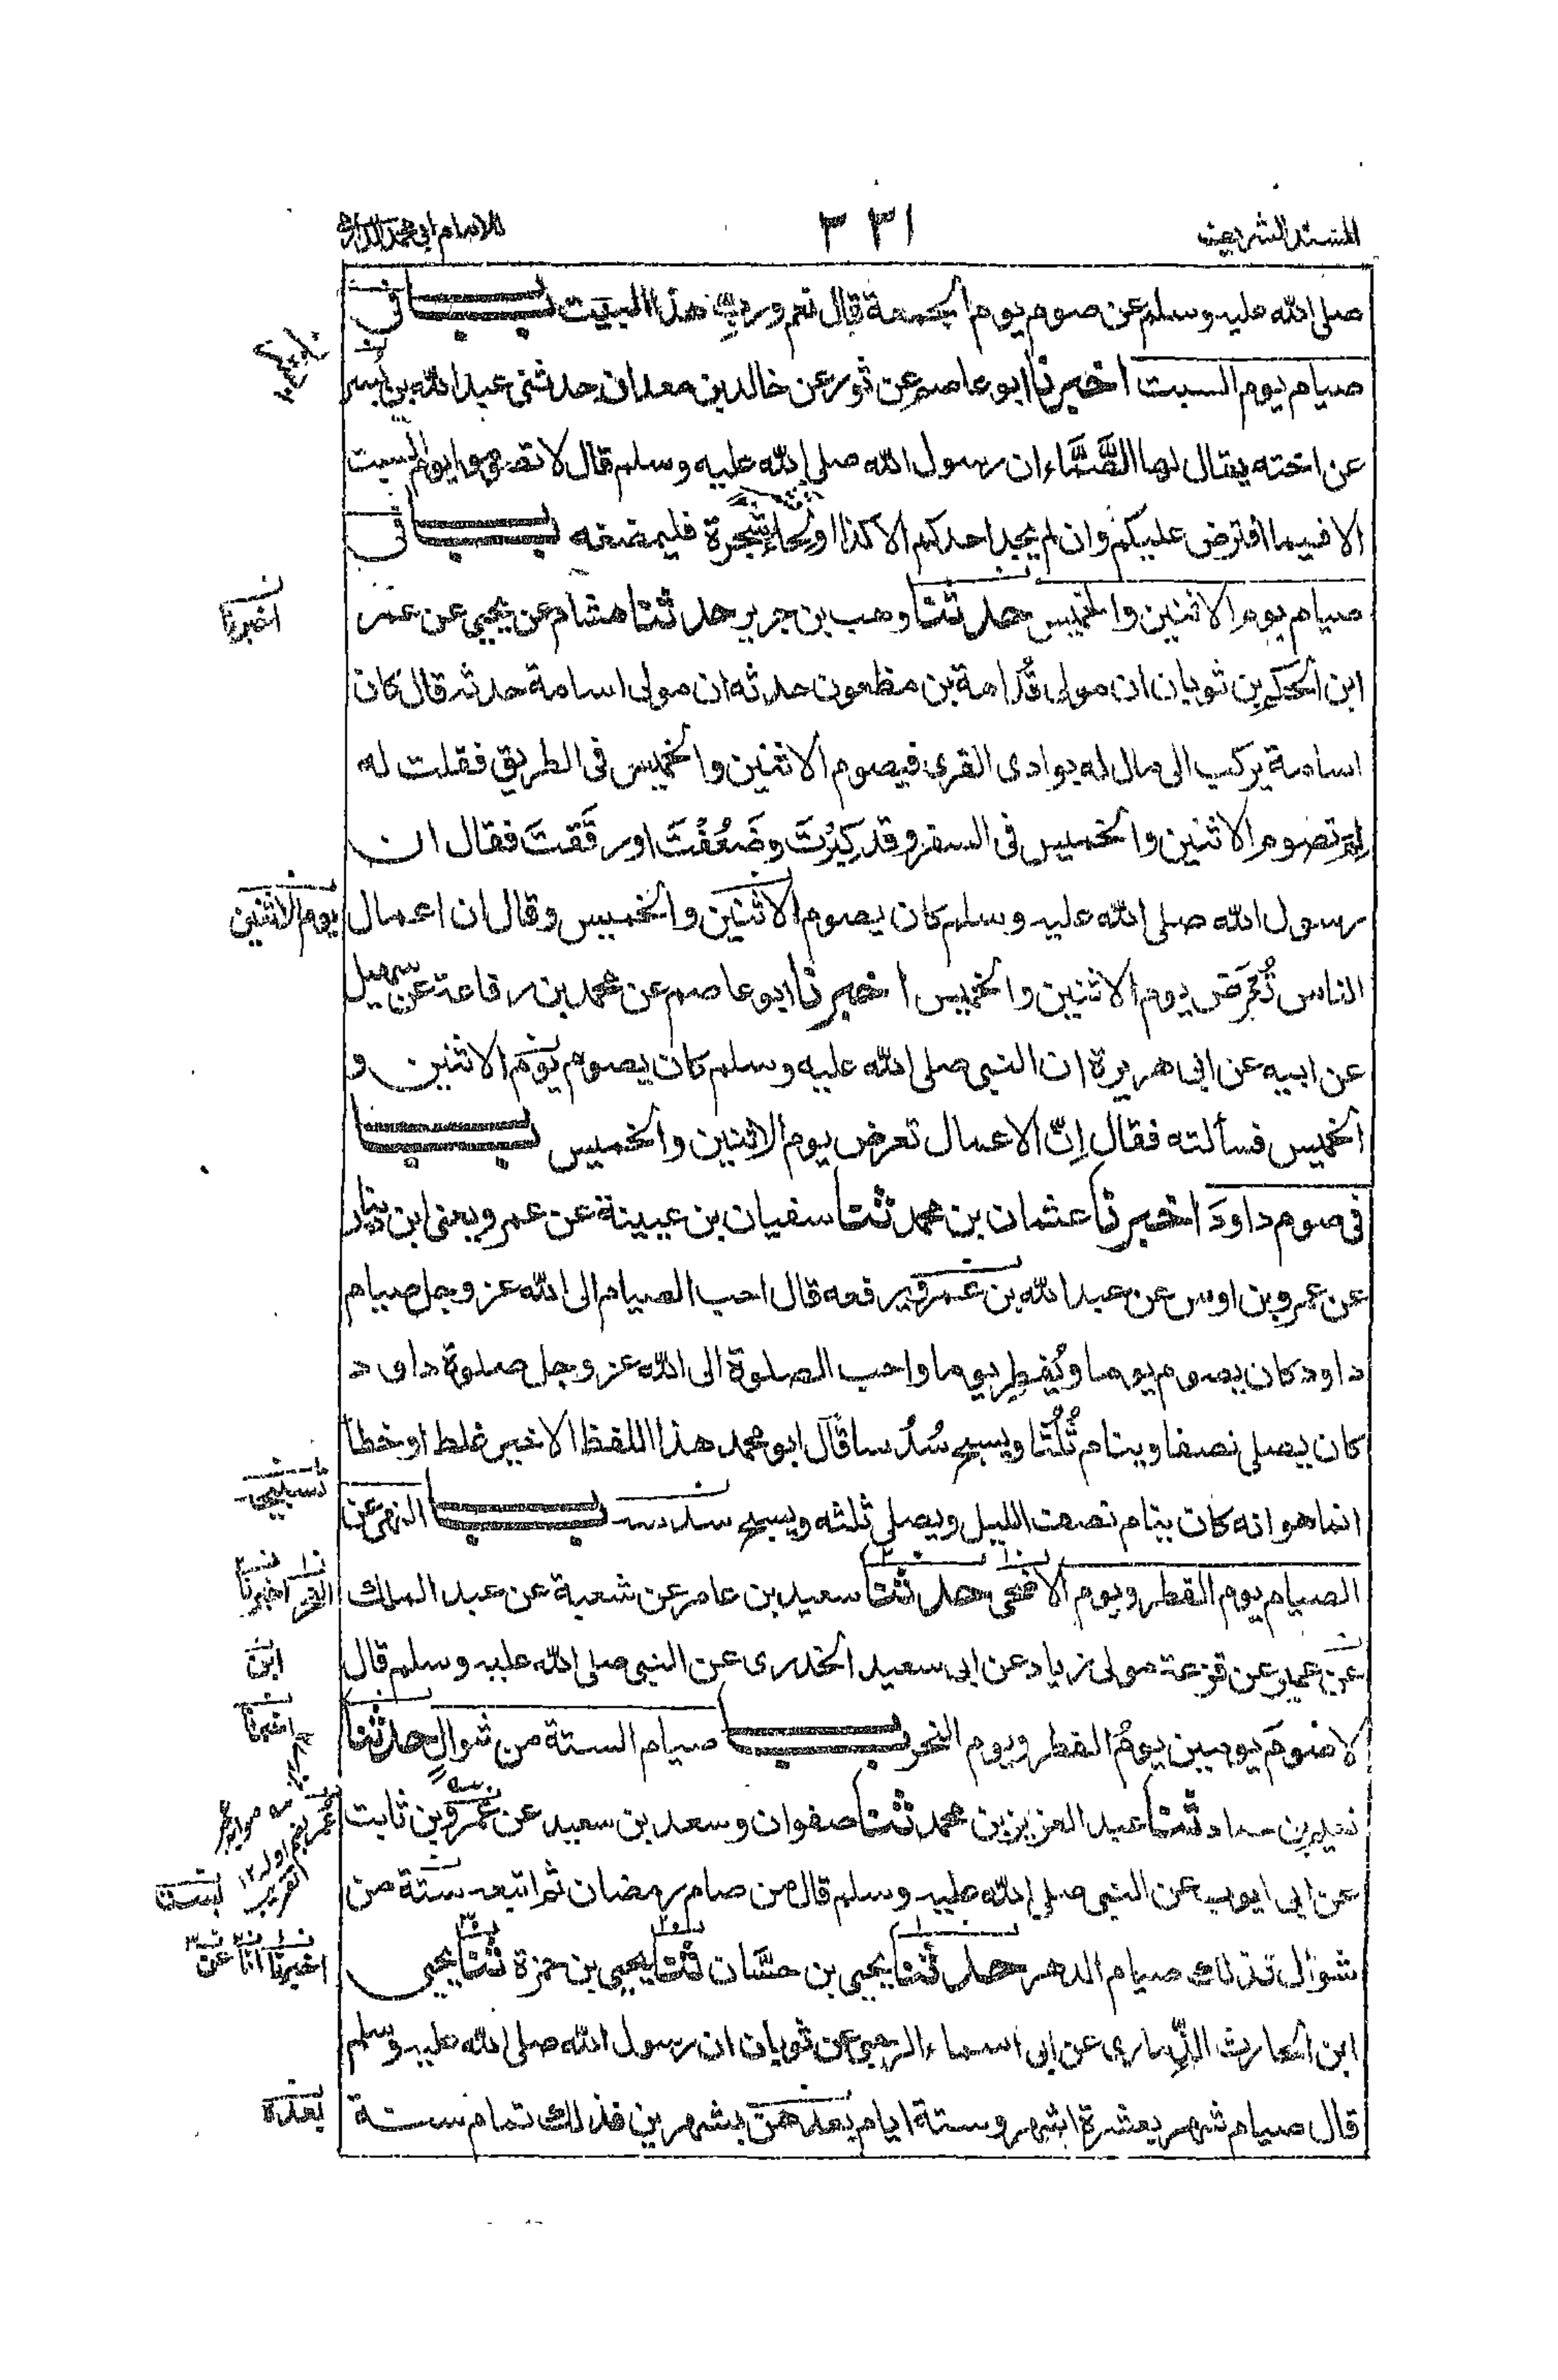 المسند الشريف
٢٣١
للامام ابي محمد الدارمي
صلى الله عليه وسلم عن صوم يوم الجمعة قال نعم ورب هذا البيت باب في
صيام يوم السبت اخبرنا ابو عاصم عن ثور عن خالد بن معدان حدثني عبد الله بن بسر
عن اخته يقال لها الصَّمَّاء ان رسول الله صلى الله عليه وسلم قال لا تصوموا يوم السبت
الا فيما افترض عليكم وان لم يجد احدكم الا كذا او لحاء شجرة فليمضغه باب في
صيام يوم الاثنين والخميس حدثنا وهب بن جرير حدثنا هشام عن يحيى عن عمر
اخبرنا
ابن الحكم بن ثوبان ان مولى قُدامة بن مظعون حدثه ان مولى اسامة حدثه قال كان
اسامة يركب الى مال له بوادى القرى فيصوم الاثنين والخميس فى الطريق فقلت له
لِمَ تصوم الاثنين والخميس فى السفر وقد كبِرْتَ وضَعُفْتَ او رقَقتَ فقال ان
رسول الله صلى الله عليه وسلم كان يصوم الاثنين والخميس وقال ان اعمال
يوم الاثنين
الناس تُعرَض يوم الاثنين والخميس اخبرنا ابو عاصم عن محمد بن رفاعة عن سهيل
عن ابيه عن ابى هريرة ان النبى صلى الله عليه وسلم كان يصوم يوم الاثنين و
الخميس فسألته فقال اِنّ الاعمال تعرض يوم الاثنين والخميس باب
فى صوم داودَ اخبرنا عثمان بن محمد ثنا سفيان بن عيينة عن عمرو يعنى ابن دينار
عن عمرو بن اوس عن عبد الله بن عمرو يرفعه قال احب الصيام الى الله عز وجل صيام
داود كان يصوم يوما ويُفطِر يوما واحب الصلوة الى الله عز وجل صلوة داود
كان يصلى نصفا وينام ثُلُثا ويسبح سُدُسا قال ابو محمد هذا اللفظ الاخير غلط او خطأ
انما هو انه كان ينام نصف الليل ويصلى ثلثه ويسبح سدسه باب النهى عن
تسبيحى
الصيام يوم الفطر ويوم الاضحى حدثنا سعيد بن عامر عن شعبة عن عبد الملك
النحر اخبرنا
عن عمير عن قزعة مولى زياد عن ابى سعيد الخدرى عن النبى صلى الله عليه وسلم قال
ابن
لا صَومَ يومين يومُ الفطر ويوم النحر باب صيام الستة من شوال حدثنا
اخبرنا
نعيم بن حماد ثنا عبد العزيز بن محمد ثنا صفوان وسعد بن سعيد عن عمرو بن ثابت
عن ابى ايوب عن النبى صلى الله عليه وسلم قال من صام رمضان ثم اتبعه ستة من
بست
شوال فذلك صيام الدهر حدثنا يحيى بن حسَّان ثنا يحيى بن حمزة ثنا يحيى
اخبرنا انا عن
ابن الحارث الذِّمارى عن ابى اسماء الرحبى عن ثوبان ان رسول الله صلى الله عليه وسلم
قال صيام شهر بعشرة اشهر وستة ايام بعدهن بشهرين فذلك تمام سنة
بعده